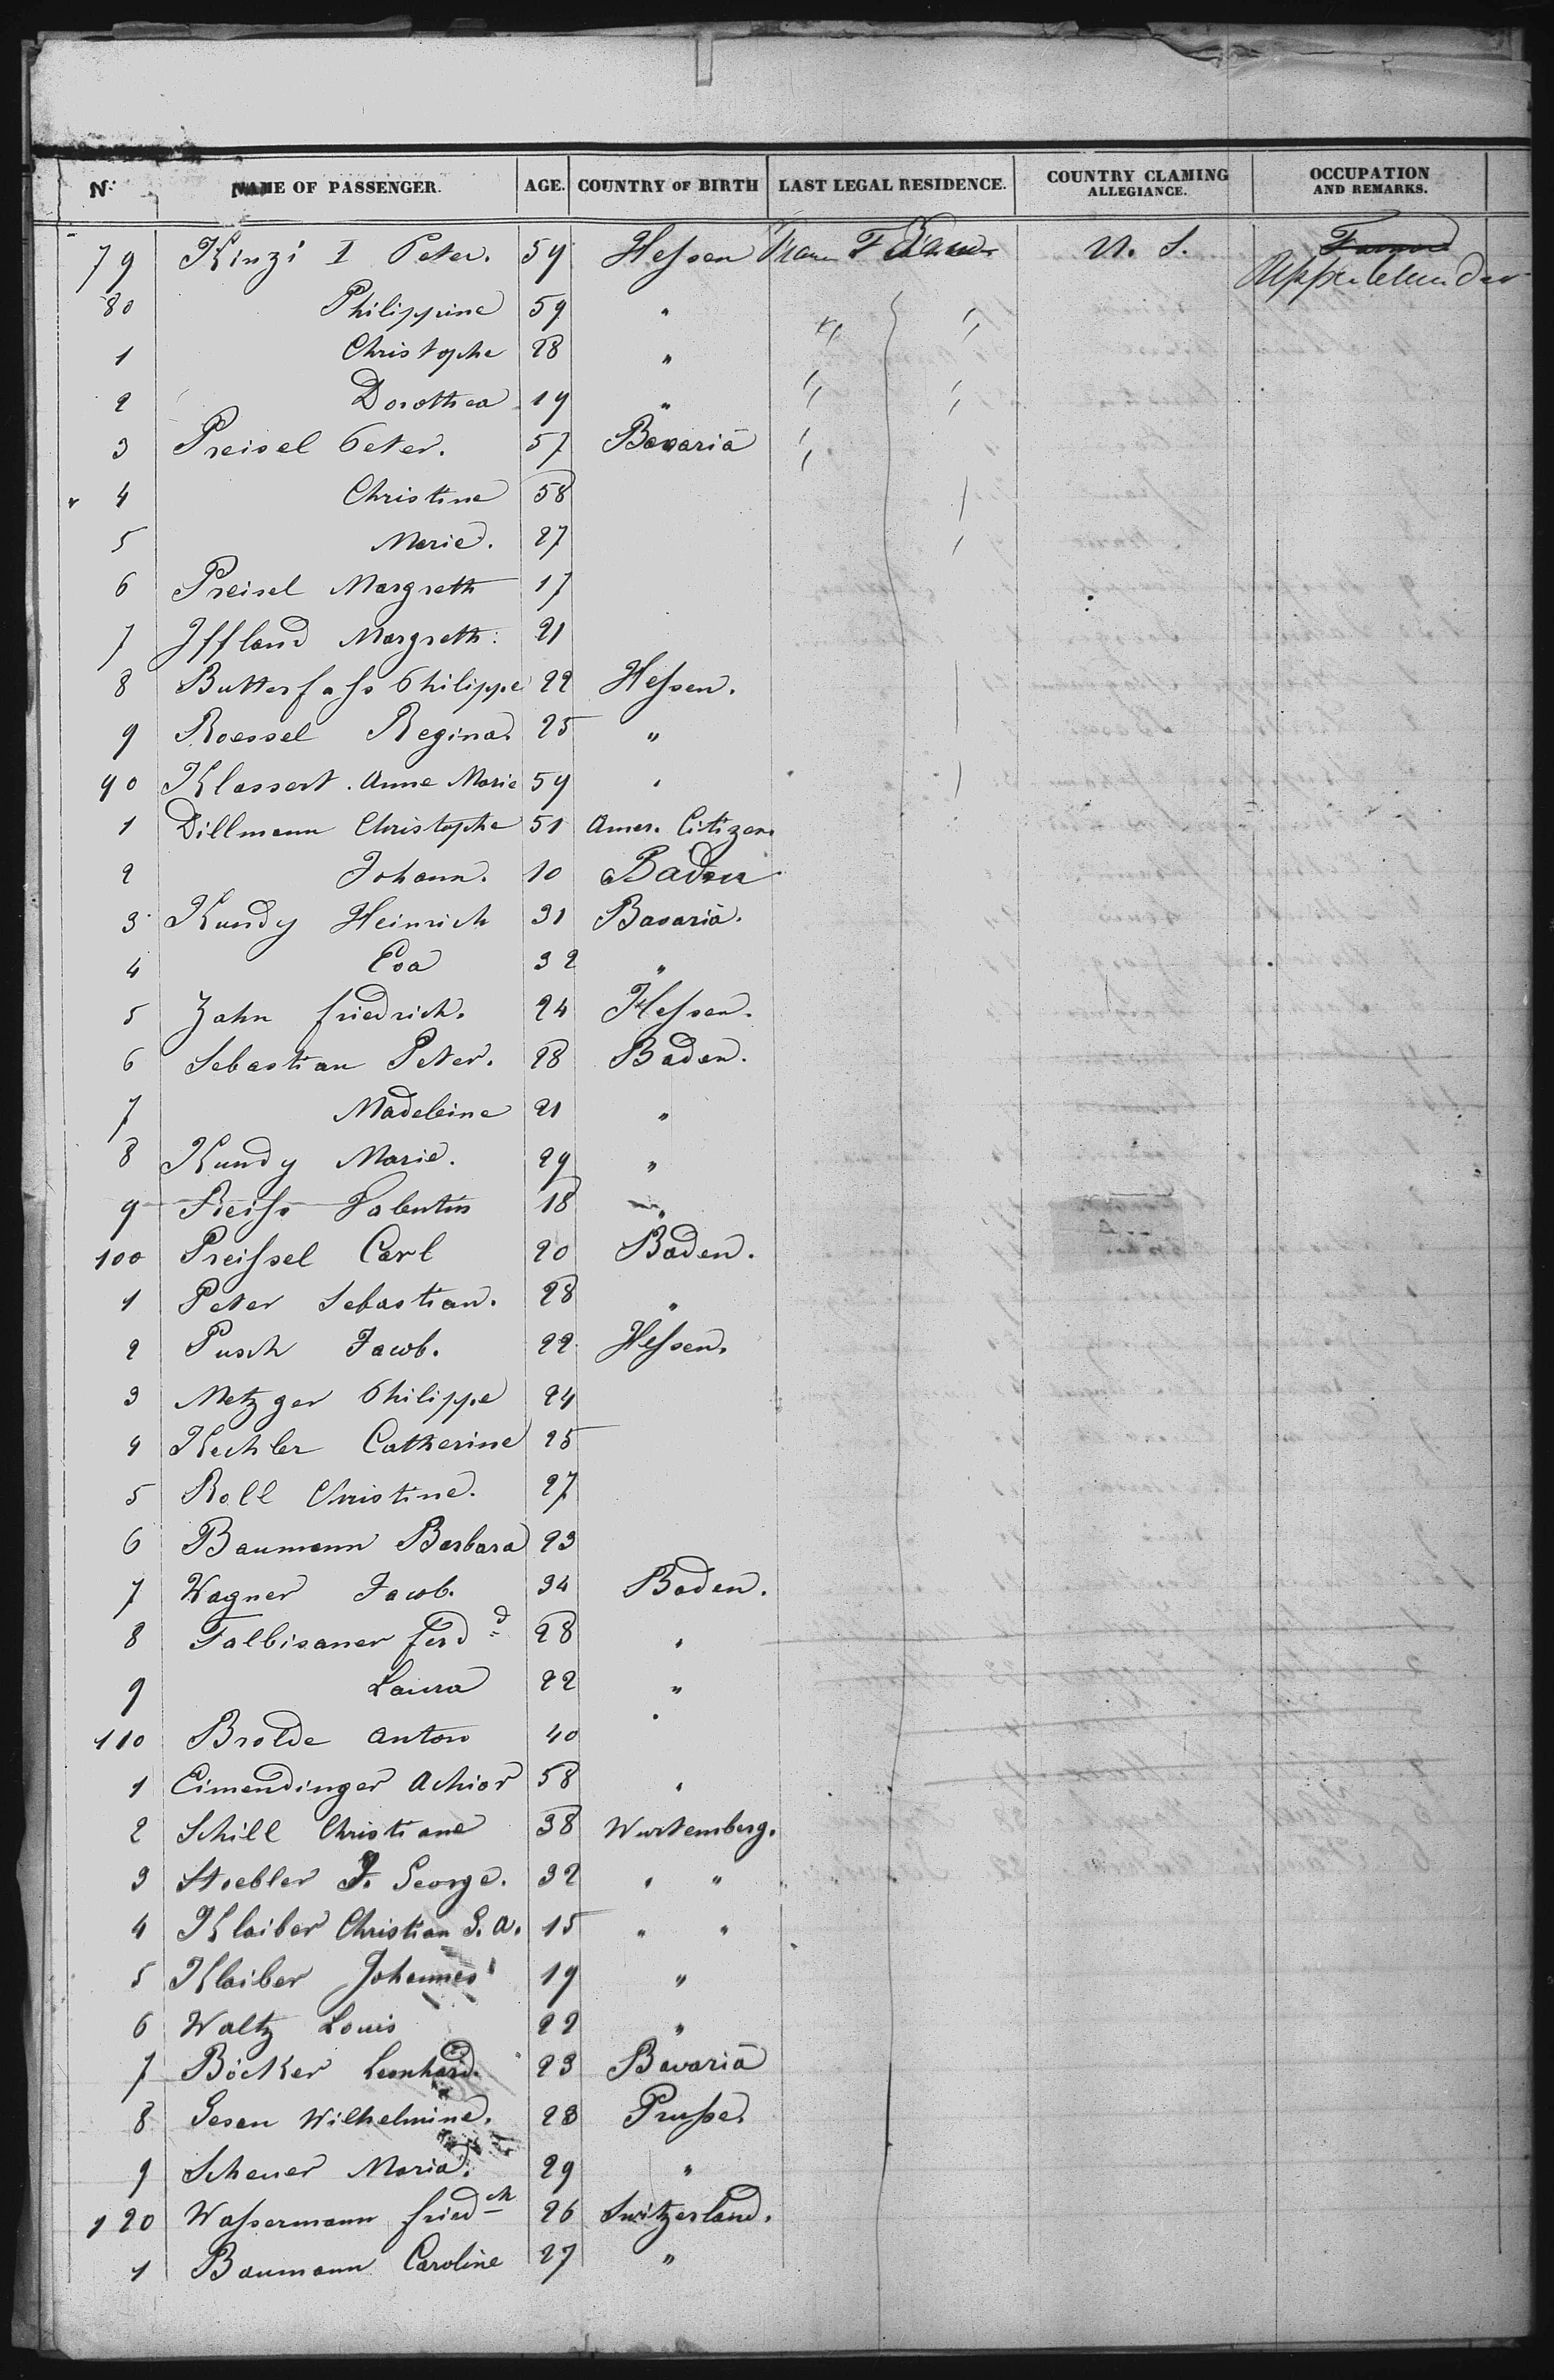 N: NAME OF PASSENGER. AGE. COUNTRY OF BIRTH LAST LEGAL RESIDENCE. COUNTRY CLAMING ALLEGIANCE. OCCUPATION AND REMARKS.
79 Kinzi I Peter. 59 Hessen U. S. Farmer
80 Philippine 59 "
1 Christophe 28 "
2 Dorothea 19 "
3 Preisel Peter. 57 Bavaria
4 Christine 58
5 Marie. 27
6 Preisel Margreth 17
7 Iffland Margreth: 21
8 Butterfass Philippe 22 Hessen.
9 Roessel Regina. 25 "
90 Klassert. Anne Marie 59 "
1 Dillmann Christophe 51 Amer. Citizen.
2 Johann. 10 Baden
3 Kundy Heinrich 31 Bavaria.
4 Eva 32 "
5 Zahn friedrich. 24 Hessen.
6 Sebastian Peter. 28 Baden.
7 Madeleine 21 "
8 Kundy Marie. 29 "
9 Valentin 18 "
100 Preissel Carl 20 Baden.
1 Peter Sebastian. 28 "
2 Pusch Jacob. 22 Hessen.
3 Metzger Philippe 24
4 Kechler Catherine 25
5 Roll Christine. 27
6 Baumann Barbara 23
7 Wagner Jacob. 34 Baden.
8 Falbisaner ferd d 28 "
9 Laura 22 "
110 Brolde Anton 40
1 Eimendinger Achior 58 "
2 Schill Christiane 38 Wurtemberg.
3 Stoebler J. George. 32 " "
4 Klaiber Christian G. A. 15 " "
5 Klaiber Johannes 19 "
6 Waltz Louis 22 "
7 Böcker Leonhard. 23 Bavaria
8 Gesen Wilhelmine. 28 Prusse.
9 Scheuer Maria. 29 "
120 Wassermann fried ch 26 Switzerland.
1 Baumann Caroline 27 "